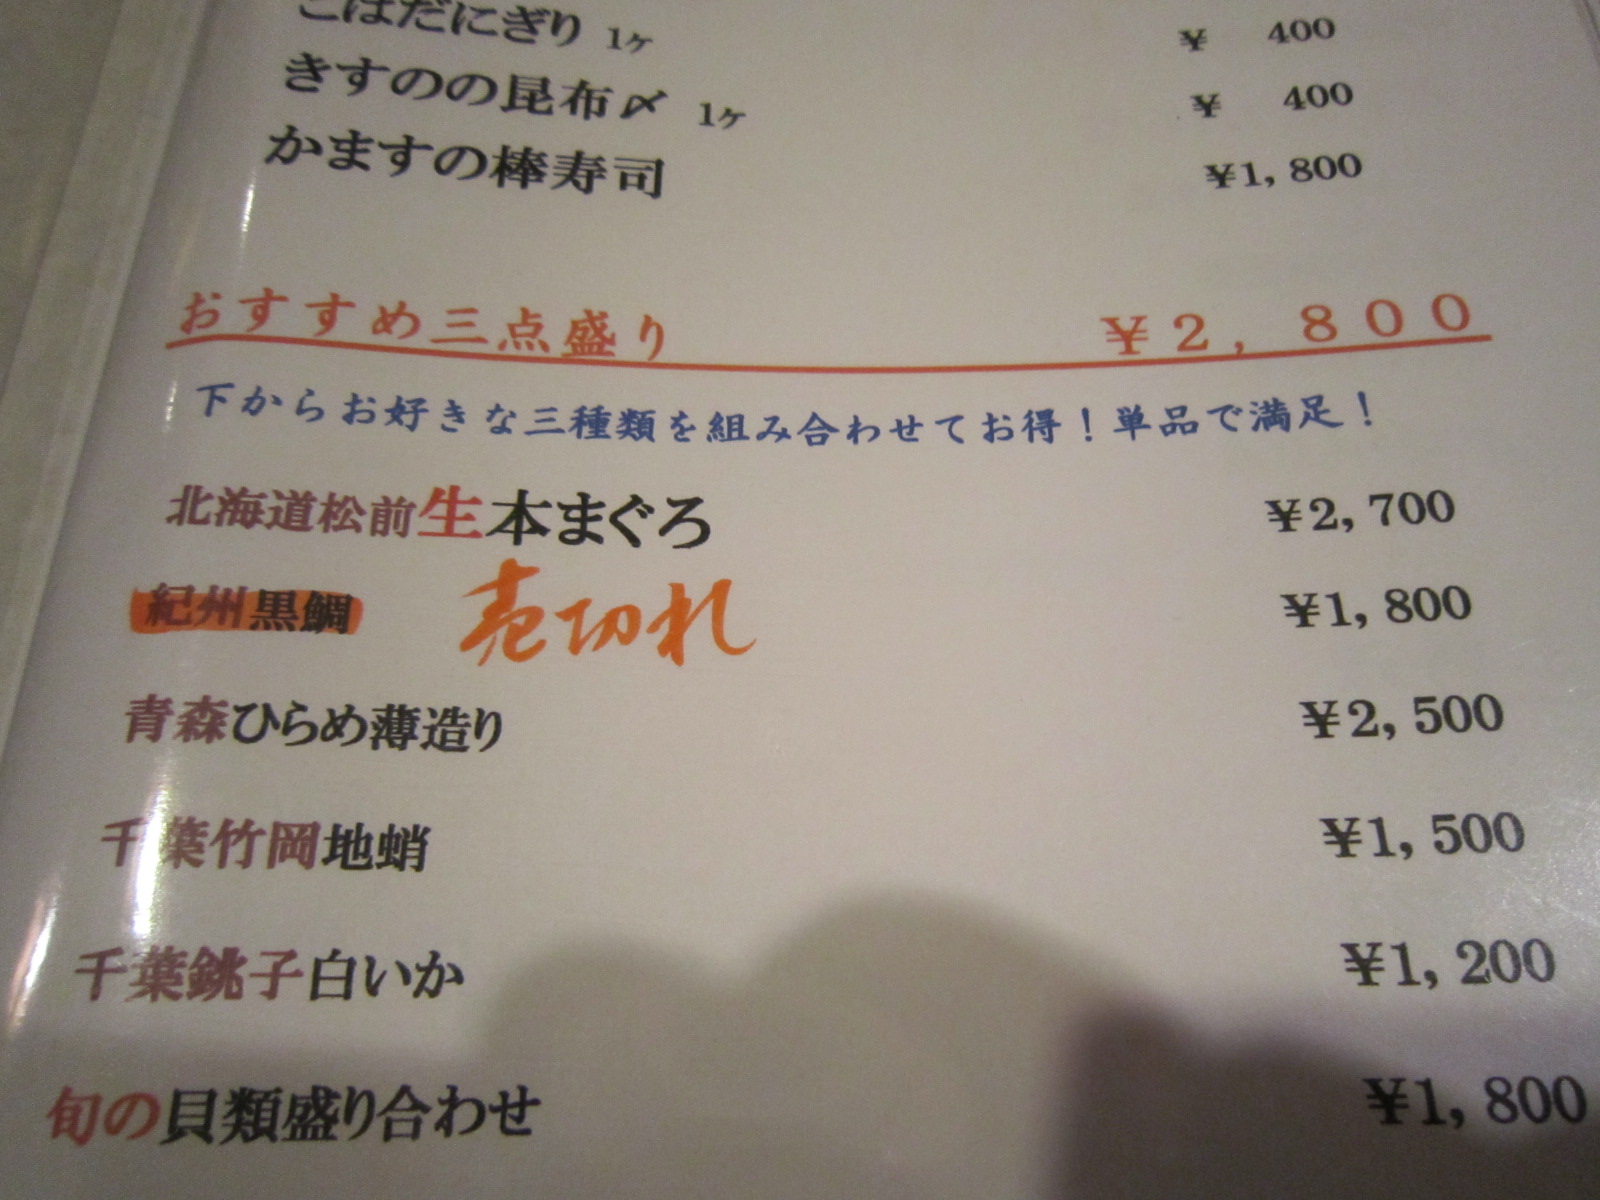 こはだにぎり 1ヶ ¥ 400
きすのの昆布〆 1ヶ ¥ 400
かますの棒寿司 ¥1,800
おすすめ三点盛り ¥2,800
下からお好きな三種類を組み合わせてお得!単品で満足!
北海道松前生本まぐろ ¥2,700
紀州黒鯛 売切れ ¥1,800
青森ひらめ薄造り ¥2,500
千葉竹岡地蛸 ¥1,500
千葉銚子白いか ¥1,200
旬の貝類盛り合わせ ¥1,800